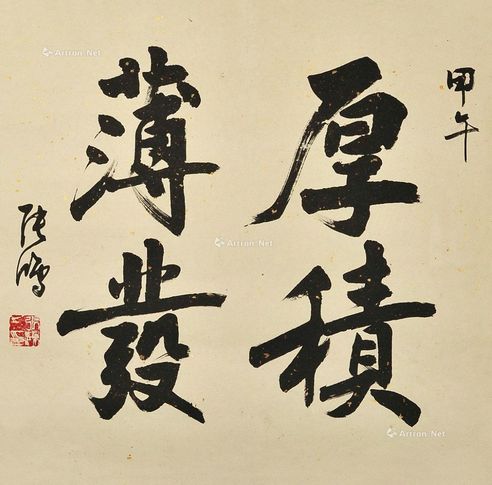 甲午
厚積
薄發
Artron.Net
Artron.Net
Artron.Net
Artron.Net